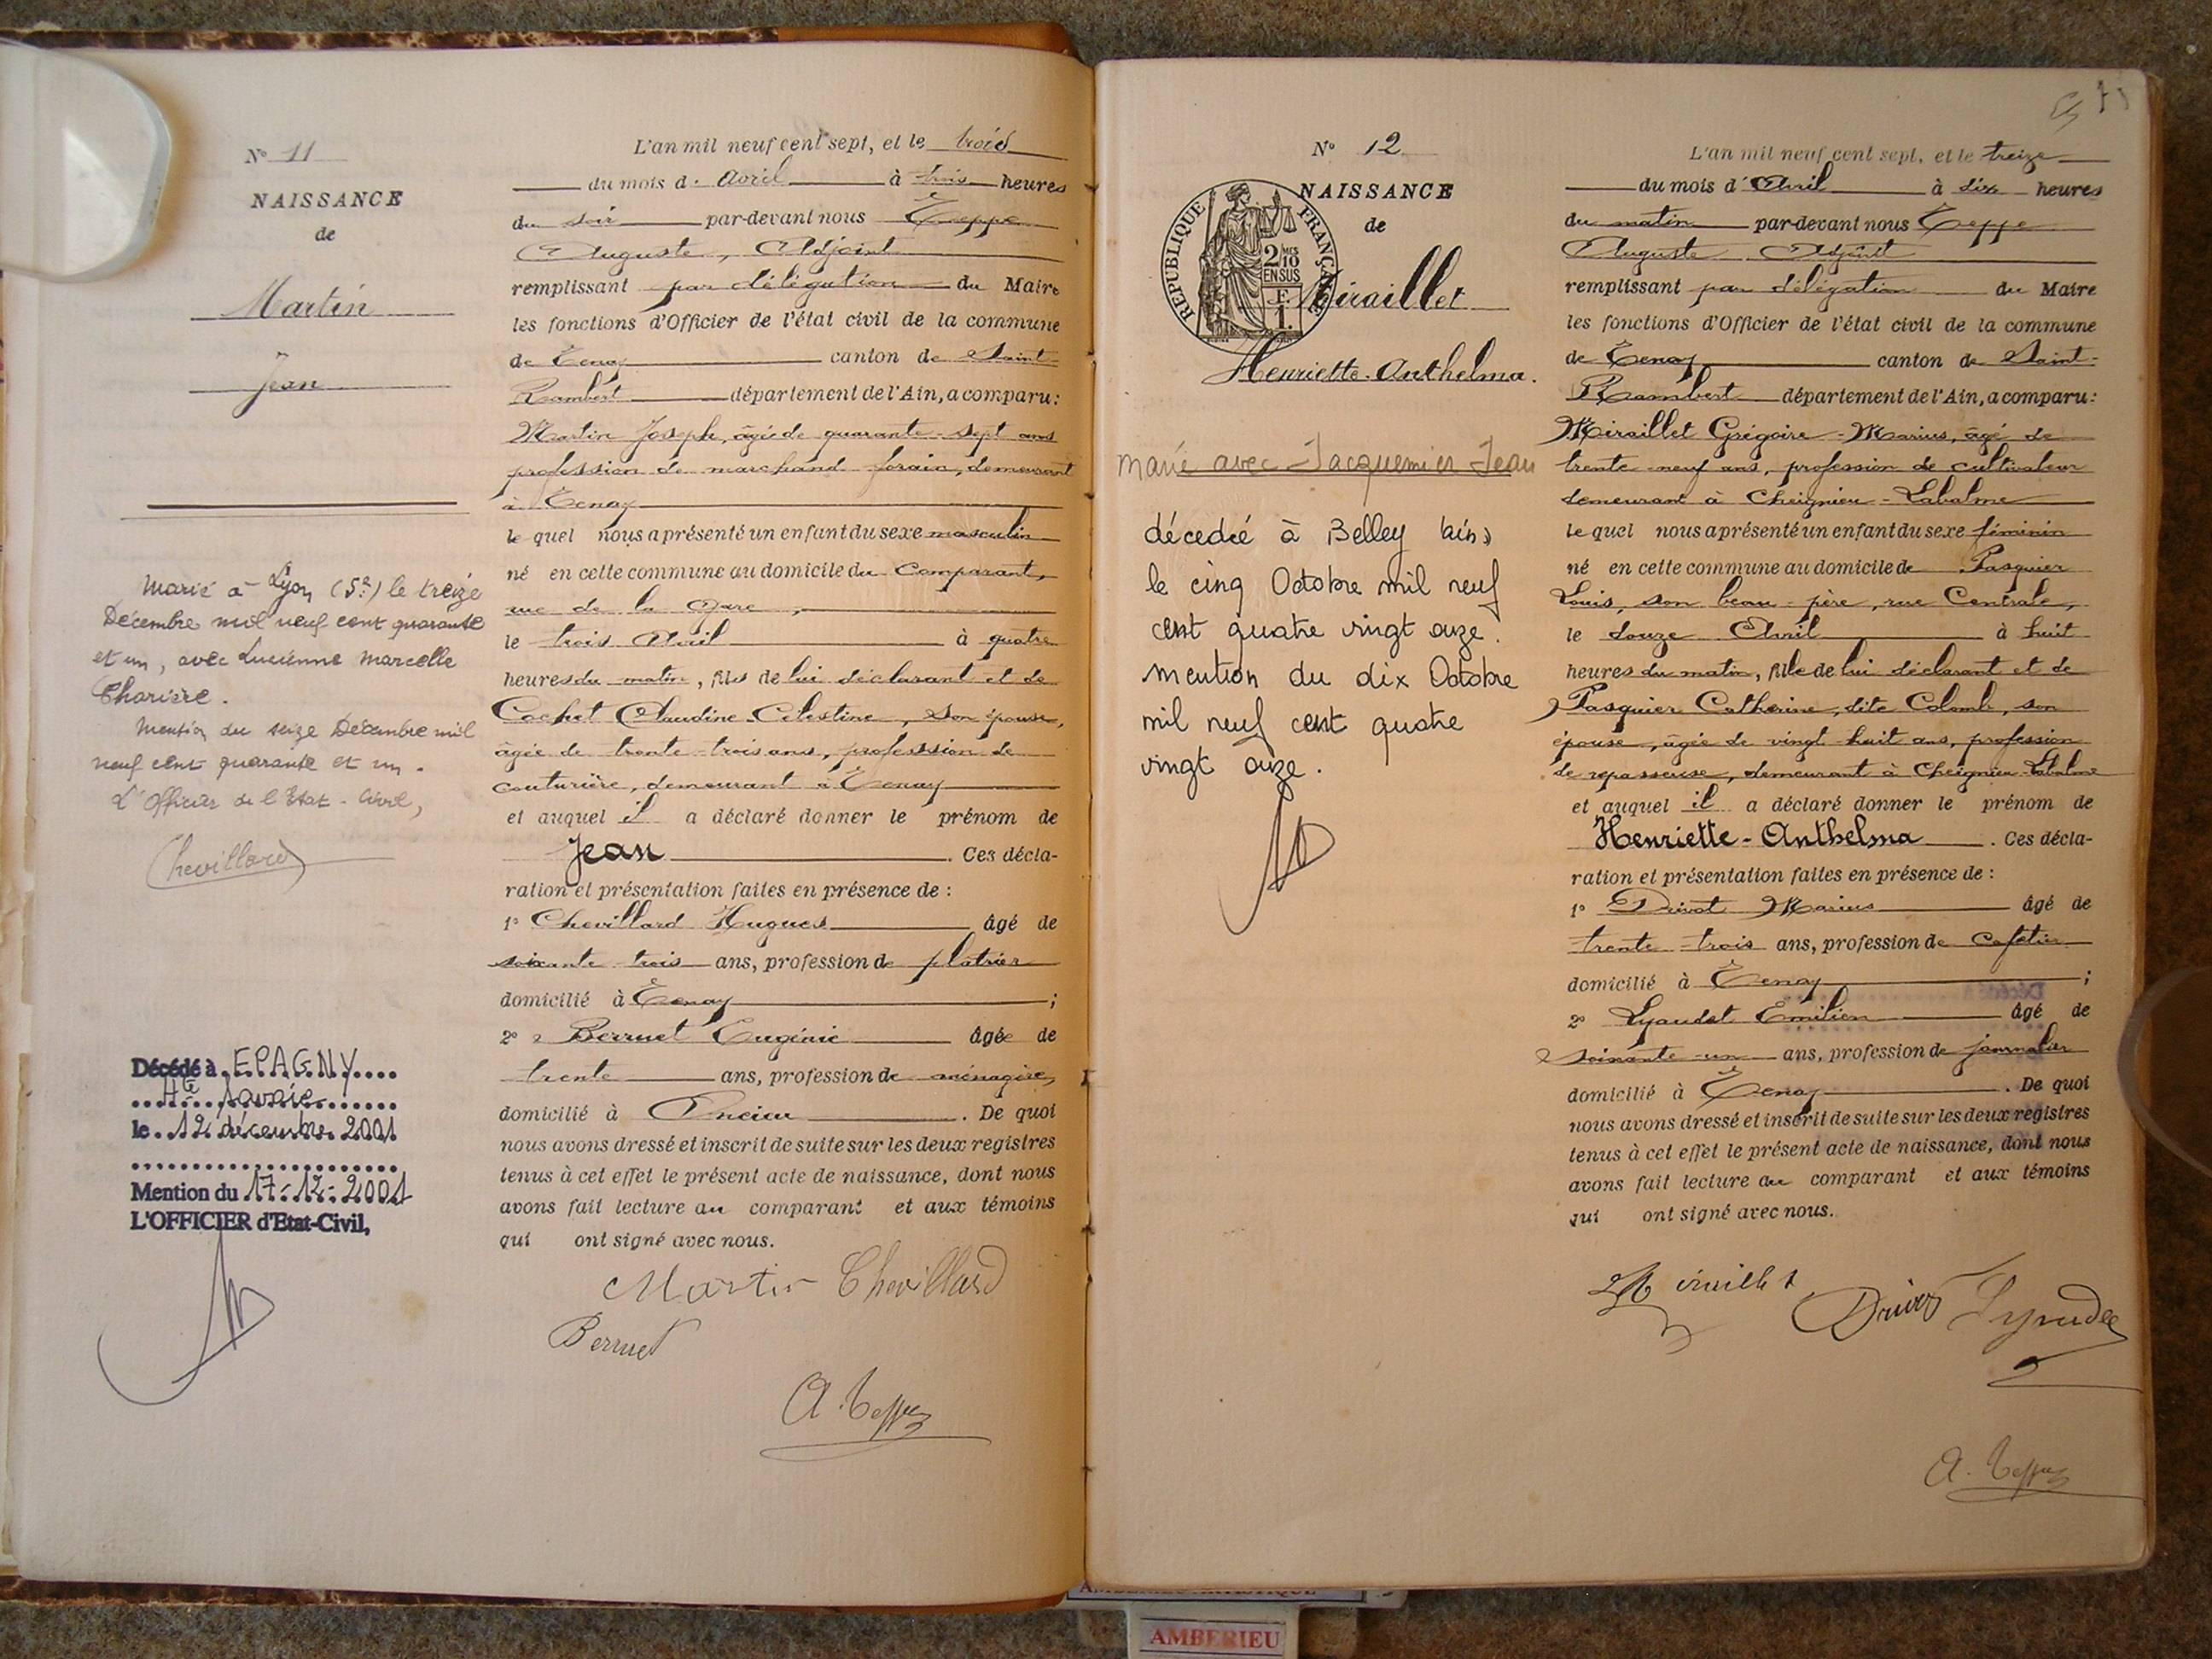 N° 11
NAISSANCE
de
Martin
Jean
Marié à Lyon (5e) le treize
Décembre mil neuf cent quarante
et un, avec Lucienne Marcelle
Charière.
Mention du seize Décembre mil
neuf cent quarante et un.
L'Officier de l'Etat-Civil,
Chevillard
Décédé à EPAGNY
Hte Savoie
le 12 décembre 2001
Mention du 17-12-2001
L'OFFICIER d'Etat-Civil,
L'an mil neuf cent sept, et le trois
du mois d' Avril à trois heures
du soir par-devant nous Teppe
Auguste, Adjoint
remplissant par délégation du Maire
les fonctions d'Officier de l'état civil de la commune
de Tenay canton de Saint-
Rambert département de l'Ain, a comparu:
Martin Joseph, âgé de quarante-sept ans
profession de marchand forain, demeurant
à Tenay
le quel nous a présenté un enfant du sexe masculin
né en cette commune au domicile du Comparant,
rue de la Gare,
le trois Avril à quatre
heures du matin, fils de lui déclarant et de
Cochet Claudine Célestine, son épouse,
âgée de trente-trois ans, profession de
couturière, demeurant à Tenay
et auquel il a déclaré donner le prénom de
Jean. Ces décla-
ration et présentation faites en présence de :
1° Chevillard Hugues âgé de
soixante-trois ans, profession de plâtrier
domicilié à Tenay ;
2° Berruet Eugénie âgée de
trente ans, profession de ménagère,
domicilié à Oncieu. De quoi
nous avons dressé et inscrit de suite sur les deux registres
tenus à cet effet le présent acte de naissance, dont nous
avons fait lecture au comparant et aux témoins
qui ont signé avec nous.
Martin Chevillard
Berruet
A. Teppe
N° 12
NAISSANCE
de
REPUBLIQUE FRANÇAISE
2 MES
10
EN SUS
F.
1.
Miraillet
Henriette-Anthelma.
Marié avec Jacquemier Jean
décedée à Belley (Ain)
le cinq Octobre mil neuf
cent quatre vingt onze.
mention du dix Octobre
mil neuf cent quatre
vingt onze.
L'an mil neuf cent sept, et le treize
du mois d'Avril à dix heures
du matin par-devant nous Teppe
Auguste Adjoint
remplissant par délégation du Maire
les fonctions d'Officier de l'état civil de la commune
de Tenay canton de Saint-
Rambert département de l'Ain, a comparu:
Miraillet Grégoire-Marius, âgé de
trente-neuf ans, profession de cultivateur
demeurant à Cheignieu-Labalme
le quel nous a présenté un enfant du sexe féminin
né en cette commune au domicile de Pasquier
Louis, son beau-père, rue Centrale,
le douze Avril à huit
heures du matin, fille de lui déclarant et de
Pasquier Catherine, dite Colomb, son
épouse, âgée de vingt huit ans, profession
de repasseuse, demeurant à Cheignieu-Labalme
et auquel il a déclaré donner le prénom de
Henriette-Anthelma. Ces décla-
ration et présentation faites en présence de :
1° Drivot Marius âgé de
trente-trois ans, profession de cafetier
domicilié à Tenay ;
2° Lyaudet Emilien âgé de
soixante-un ans, profession de journalier
domicilié à Tenay. De quoi
nous avons dressé et inscrit de suite sur les deux registres
tenus à cet effet le présent acte de naissance, dont nous
avons fait lecture au comparant et aux témoins
qui ont signé avec nous.
Miraillet Drivot Lyaudet
A. Teppe
AMBERIEU